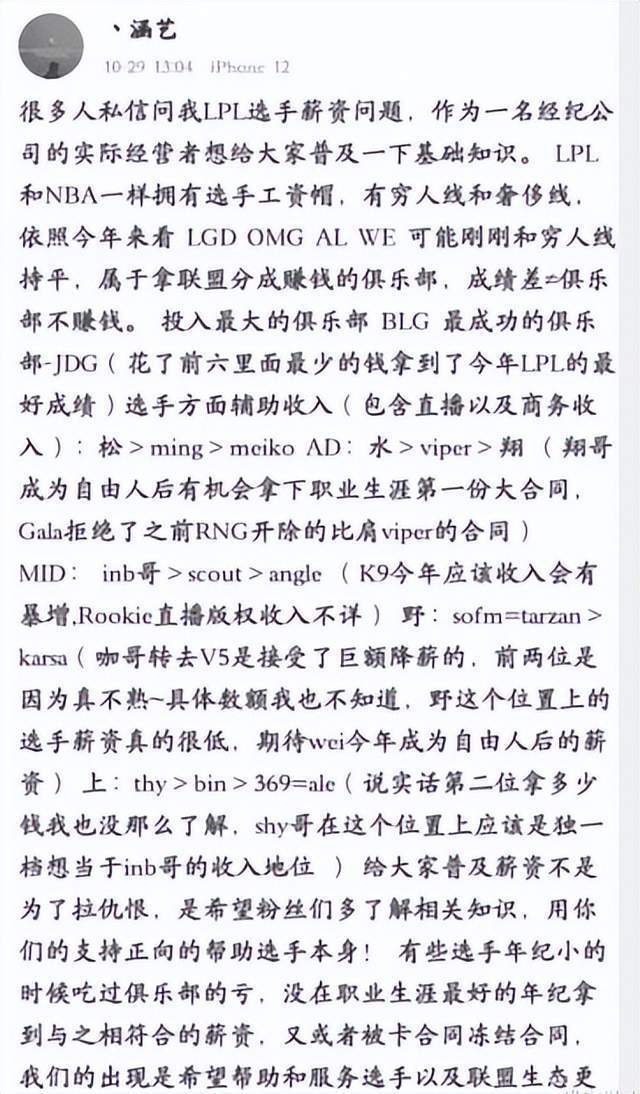 丶涵艺
10-29 13:04 iPhone 12
很多人私信问我LPL选手薪资问题，作为一名经纪公
司的实际经营者想给大家普及一下基础知识。 LPL
和NBA一样拥有选手工资帽，有穷人线和奢侈线，
依照今年来看 LGD OMG AL WE 可能刚刚和穷人线
持平，属于拿联盟分成赚钱的俱乐部，成绩差≠俱乐
部不赚钱。 投入最大的俱乐部 BLG 最成功的俱乐
部-JDG（花了前六里面最少的钱拿到了今年LPL的最
好成绩）选手方面辅助收入（包含直播以及商务收
入）：松＞ming＞meiko AD：水＞viper＞翔 （翔哥
成为自由人后有机会拿下职业生涯第一份大合同，
Gala拒绝了之前RNG开除的比肩viper的合同）
MID： inb哥＞scout＞angle （K9今年应该收入会有
暴增,Rookie直播版权收入不详） 野：sofm=tarzan＞
karsa（咖哥转去V5是接受了巨额降薪的，前两位是
因为真不熟~具体数额我也不知道，野这个位置上的
选手薪资真的很低，期待wei今年成为自由人后的薪
资） 上：thy＞bin＞369=ale（说实话第二位拿多少
钱我也没那么了解，shy哥在这个位置上应该是独一
档想当于inb哥的收入地位 ） 给大家普及薪资不是
为了拉仇恨，是希望粉丝们多了解相关知识，用你
们的支持正向的帮助选手本身！ 有些选手年纪小的
时候吃过俱乐部的亏，没在职业生涯最好的年纪拿
到与之相符合的薪资，又或者被卡合同冻结合同，
我们的出现是希望帮助和服务选手以及联盟生态更